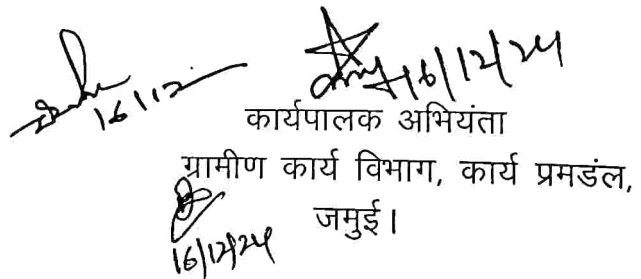 16/12
16/12/24
कार्यपालक अभियंता
ग्रामीण कार्य विभाग, कार्य प्रमडंल,
जमुई।
16/12/24